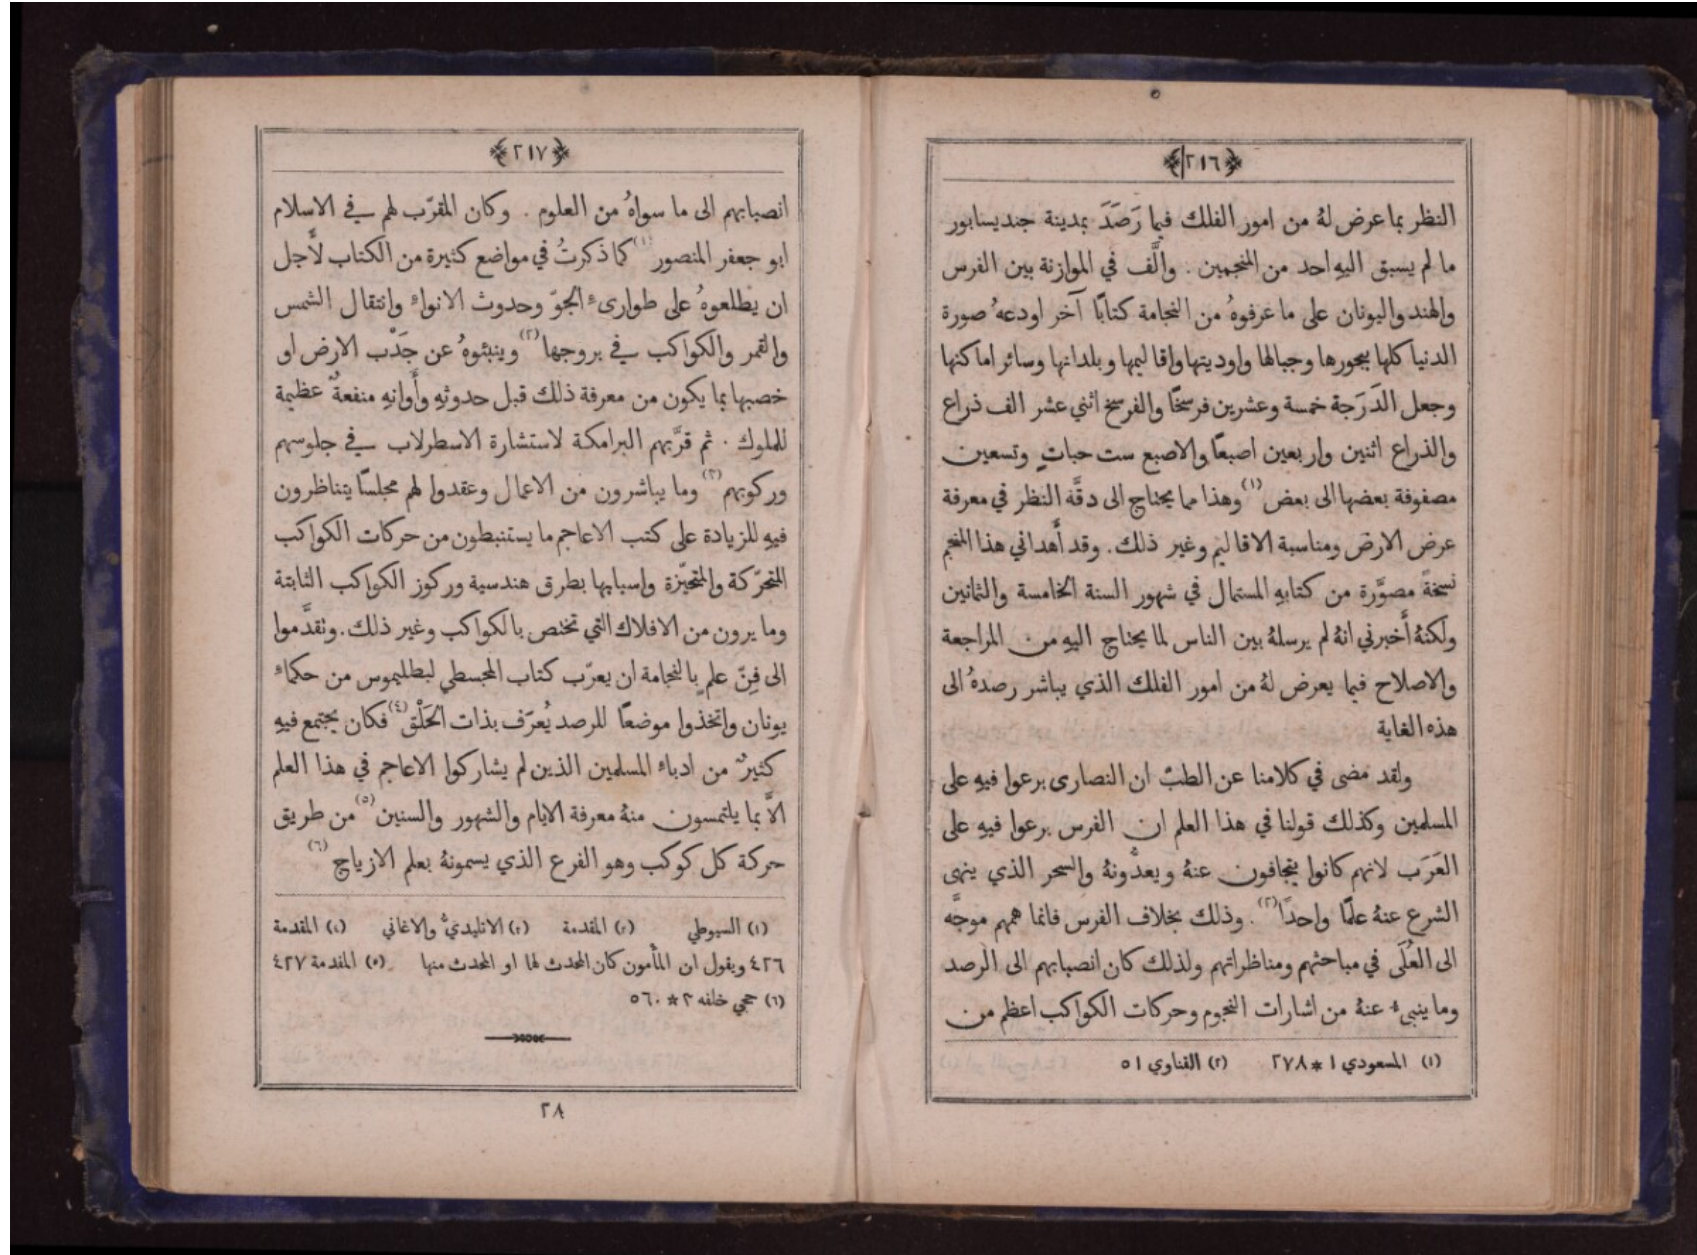 ﴿٢١٦﴾
النظر بما عرض لهُ من امور الفلك فيما رَصَدَ بمدينة جنديسابور
ما لم يسبق اليهِ احد من المنجمين . والَّف في الموازنة بين الفرس
والهند واليونان على ما عرفوهُ من النجامة كتابًا آخر اودعهُ صورة
الدنيا كلها ببحورها وجبالها واوديتها واقاليمها وبلدانها وسائر اماكنها
وجعل الدَرَجة خمسة وعشرين فرسخًا والفرسخ اثني عشر الف ذراع
والذراع اثنين واربعين اصبعًا والاصبع ست حباتٍ وتسعين
مصفوفة بعضها الى بعض (١) وهذا مما يحتاج الى دقَّة النظر في معرفة
عرض الارض ومناسبة الاقاليم وغير ذلك. وقد أَهداني هذا المنجم
نسخةً مصوَّرة من كتابهِ المستمال في شهور السنة الخامسة والثمانين
ولكنهُ أَخبرني انهُ لم يرسلهُ بين الناس لما يحتاج اليهِ من المراجعة
والاصلاح فيما يعرض لهُ من امور الفلك الذي يباشر رصدهُ الى
هذه الغاية
ولقد مضى في كلامنا عن الطبّ ان النصارى برعوا فيهِ على
المسلمين وكذلك قولنا في هذا العلم ان الفرس برعوا فيهِ على
العَرَب لانهم كانوا يتجافون عنهُ ويعدُّونهُ والسحر الذي ينهى
الشرع عنهُ علمًا واحدًا (٢). وذلك بخلاف الفرس فانما هممهم موجَّه
الى العُلَى في مباحثهم ومناظراتهم ولذلك كان انصبابهم الى الرصد
وما ينبيء عنهُ من اشارات النجوم وحركات الكواكب اعظم من
(١) المسعودي ١ * ٢٧٨ (٢) القناوي ٥١
﴿٢١٧﴾
انصبابهم الى ما سواهُ من العلوم . وكان المقرّب لهم في الاسلام
ابو جعفر المنصور (١) كما ذكرتُ في مواضع كثيرة من الكتاب لأَجل
ان يطلعوهُ على طوارىء الجوّ وحدوث الانواء وانتقال الشمس
والقمر والكواكب في بروجها (٢) وينبئوهُ عن جَدْب الارض او
خصبها بما يكون من معرفة ذلك قبل حدوثهِ وأَوانهِ منفعةٌ عظيمة
للملوك . ثم قرَّبهم البرامكة لاستشارة الاسطرلاب في جلوسهم
وركوبهم (٣) وما يباشرون من الاعمال وعقدوا لهم مجلسًا يتناظرون
فيهِ للزيادة على كتب الاعاجم ما يستنبطون من حركات الكواكب
المتحرّكة والمتحيّزة واسبابها بطرق هندسية وركوز الكواكب الثابتة
وما يرون من الافلاك التي تختص بالكواكب وغير ذلك. وتقدَّموا
الى فِنّ علمٍ بالنجامة ان يعرّب كتاب المجسطي لبطليموس من حكماء
يونان واتخذوا موضعًا للرصد يُعرَف بذات الحَلْق (٤) فكان يجتمع فيهِ
كثيرٌ من ادباء المسلمين الذين لم يشاركوا الاعاجم في هذا العلم
الاَّ بما يلتمسون منهُ معرفة الايام والشهور والسنين (٥) من طريق
حركة كل كوكب وهو الفرع الذي يسمونهُ بعلم الازياج (٦)
(١) السيوطي (٢) المقدمة (٣) الاتليديُّ والاغاني (٤) المقدمة
٤٢٦ ويقول ان المأمون كان المحدث لها او المحدث منها (٥) المقدمة ٤٢٧
(٦) حجي خلفه ٢ * ٥٦٠
٢٨